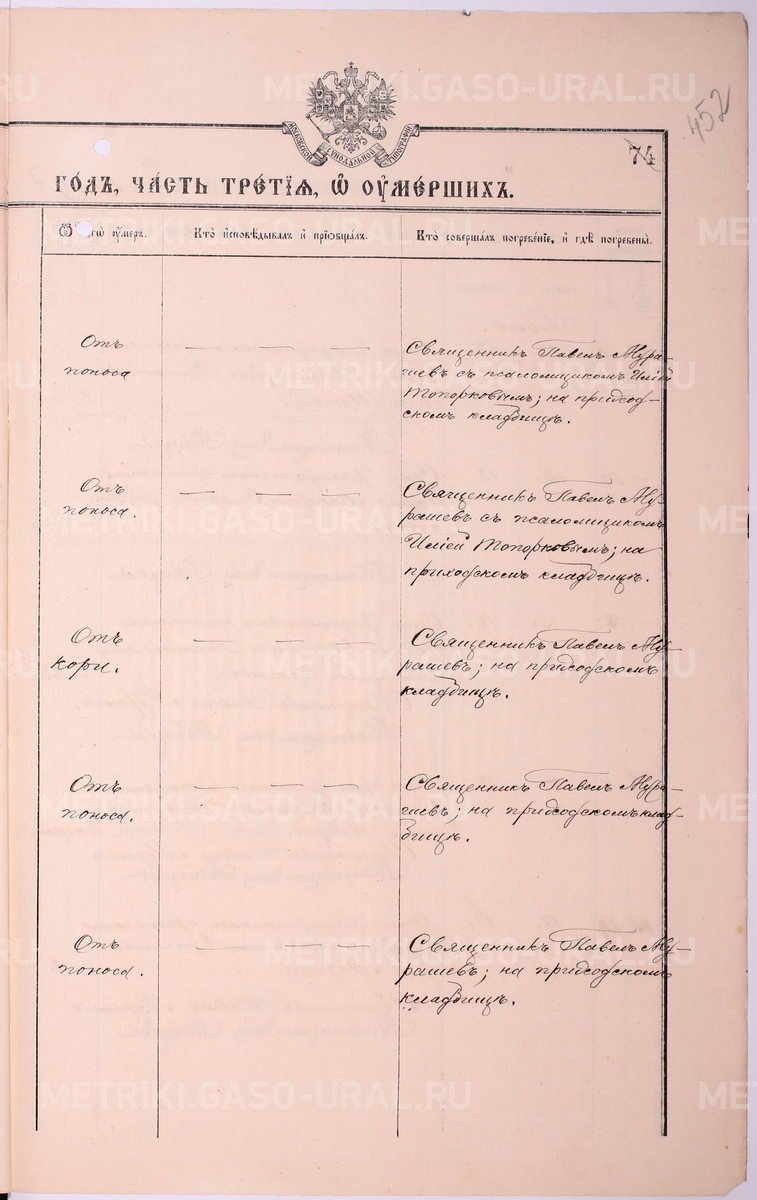 METRIKI.GASO-URAL.RU
МОСКОВСКОЙ СѴНОДАЛЬНОЙ ТИПОГРАФІИ
74
452
го́дъ, ча́сть тре́тїѧ, ѡ҆ ᲂу҆ме́ршихъ.
чегѡ̀ ᲂу҆́меръ.
Кто̀ и҆сповѣ́дывалъ и҆ прїѡбща́лъ.
Кто̀ соверша́лъ погребе́нїе, и҆ гдѣ̀ погребены̀.
Отъ
поноса
— — —
Священникъ Павелъ Мура-
шевъ съ псаломщикомъ Иліей
Топорковымъ; на приход-
скомъ кладбищѣ.
Отъ
поноса.
— — —
Священникъ Павелъ Му-
рашевъ съ псаломщикомъ
Иліей Топорковымъ; на
приходскомъ кладбищѣ.
Отъ
кори.
— — —
Священникъ Павелъ Му-
рашевъ; на приходскомъ
кладбищѣ.
Отъ
поноса.
— — —
Священникъ Павелъ Мура-
шевъ; на приходскомъ клад-
бищѣ.
Отъ
поноса.
— — —
Священникъ Павелъ Му-
рашевъ; на приходскомъ
кладбищѣ.
METRIKI.GASO-URAL.RU